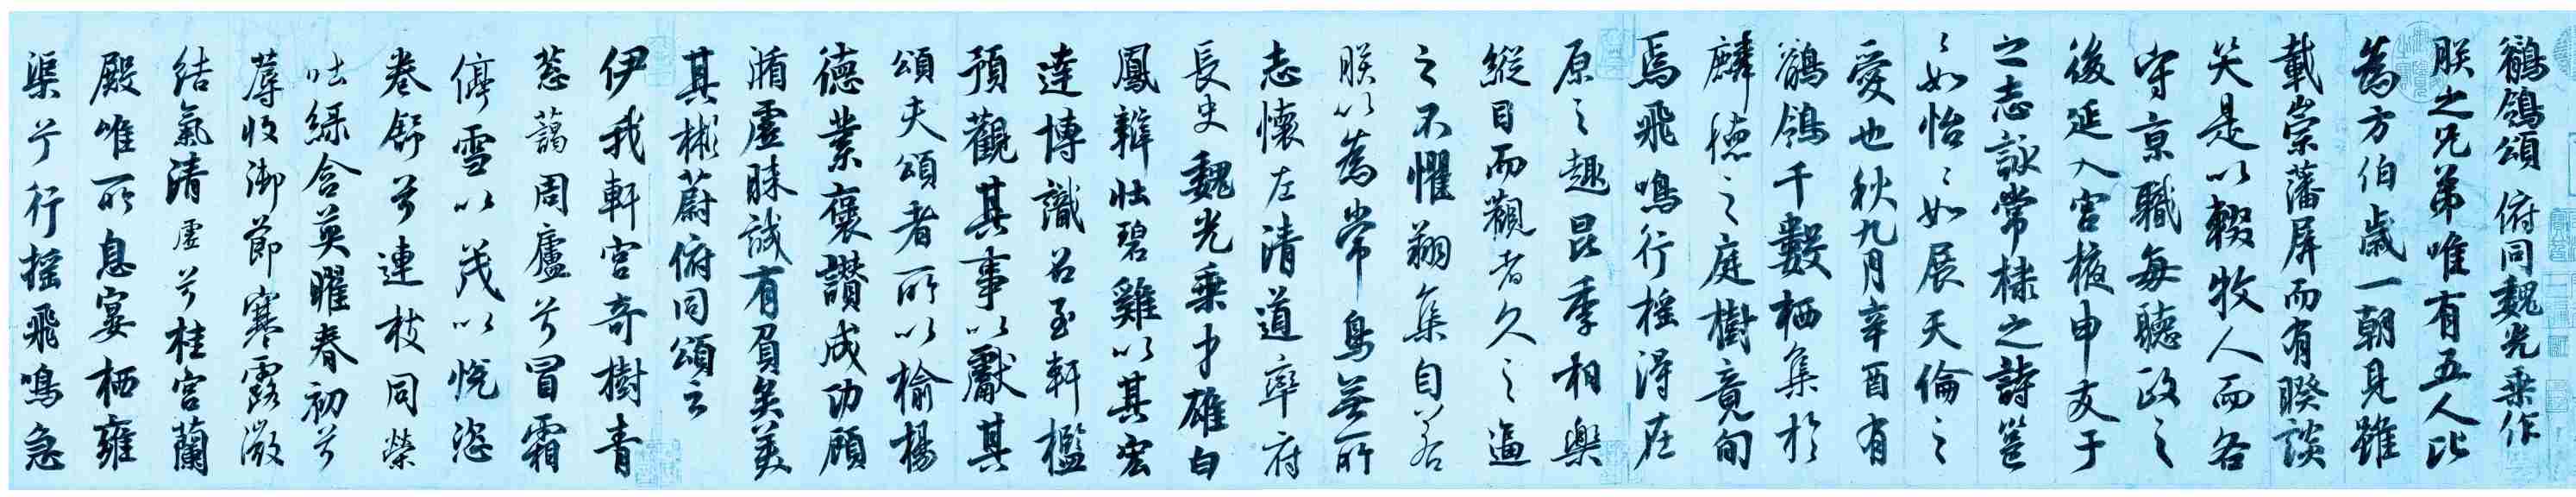 鶺鴒頌 俯同魏光乗作
朕之兄弟唯有五人比
為方伯歳一朝見雖
載崇藩屏而有睽談
笑是以輟牧人而各
守京職每聽政之
後延入宮掖申友于
之志詠常棣之詩邕
〻如怡〻如展天倫之
愛也秋九月辛酉有
鶺鴒千數栖集於
麟德之庭樹竟旬
焉飛鳴行摇得在
原之趣昆季相樂
縱目而觀者久之逼
之不懼翔集自若
朕以為常鳥無所
志懷左清道率府
長史魏光乗才雄白
鳳辯壮碧雞以其宏
達博識召至軒檻
預觀其事以獻其
頌夫頌者所以揄揚
德業褒讃成功顧
循虛昧誠有負矣美
其彬蔚俯同頌云
伊我軒宮奇樹青
葱藹周廬兮冒霜
停雪以茂以悦恣
卷舒兮連枝同榮
吐綠含英曜春初兮
蓐收御節寒露微
結氣清虛兮桂宮蘭
殿唯所息宴栖雍
渠兮行摇飛鳴急